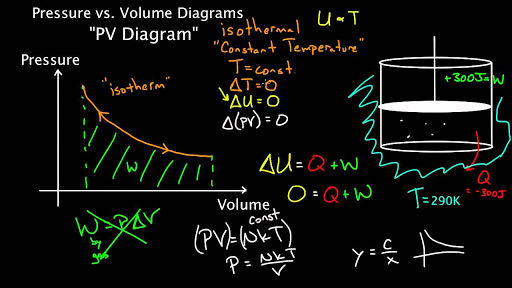 Pressure vs. Volume Diagrams
"PV Diagram"
Pressure
"isotherm"
W
Volume
W = P ΔV
by
gas
isothermal
"Constant Temperature"
T = const.
ΔT = 0
ΔU = 0
Δ(PV) = 0
U ∝ T
ΔU = Q + W
0 = Q + W
const
(PV) = (NkT)
P = NkT
V
+300J = W
Q
= -300J
T = 290K
y = c
x